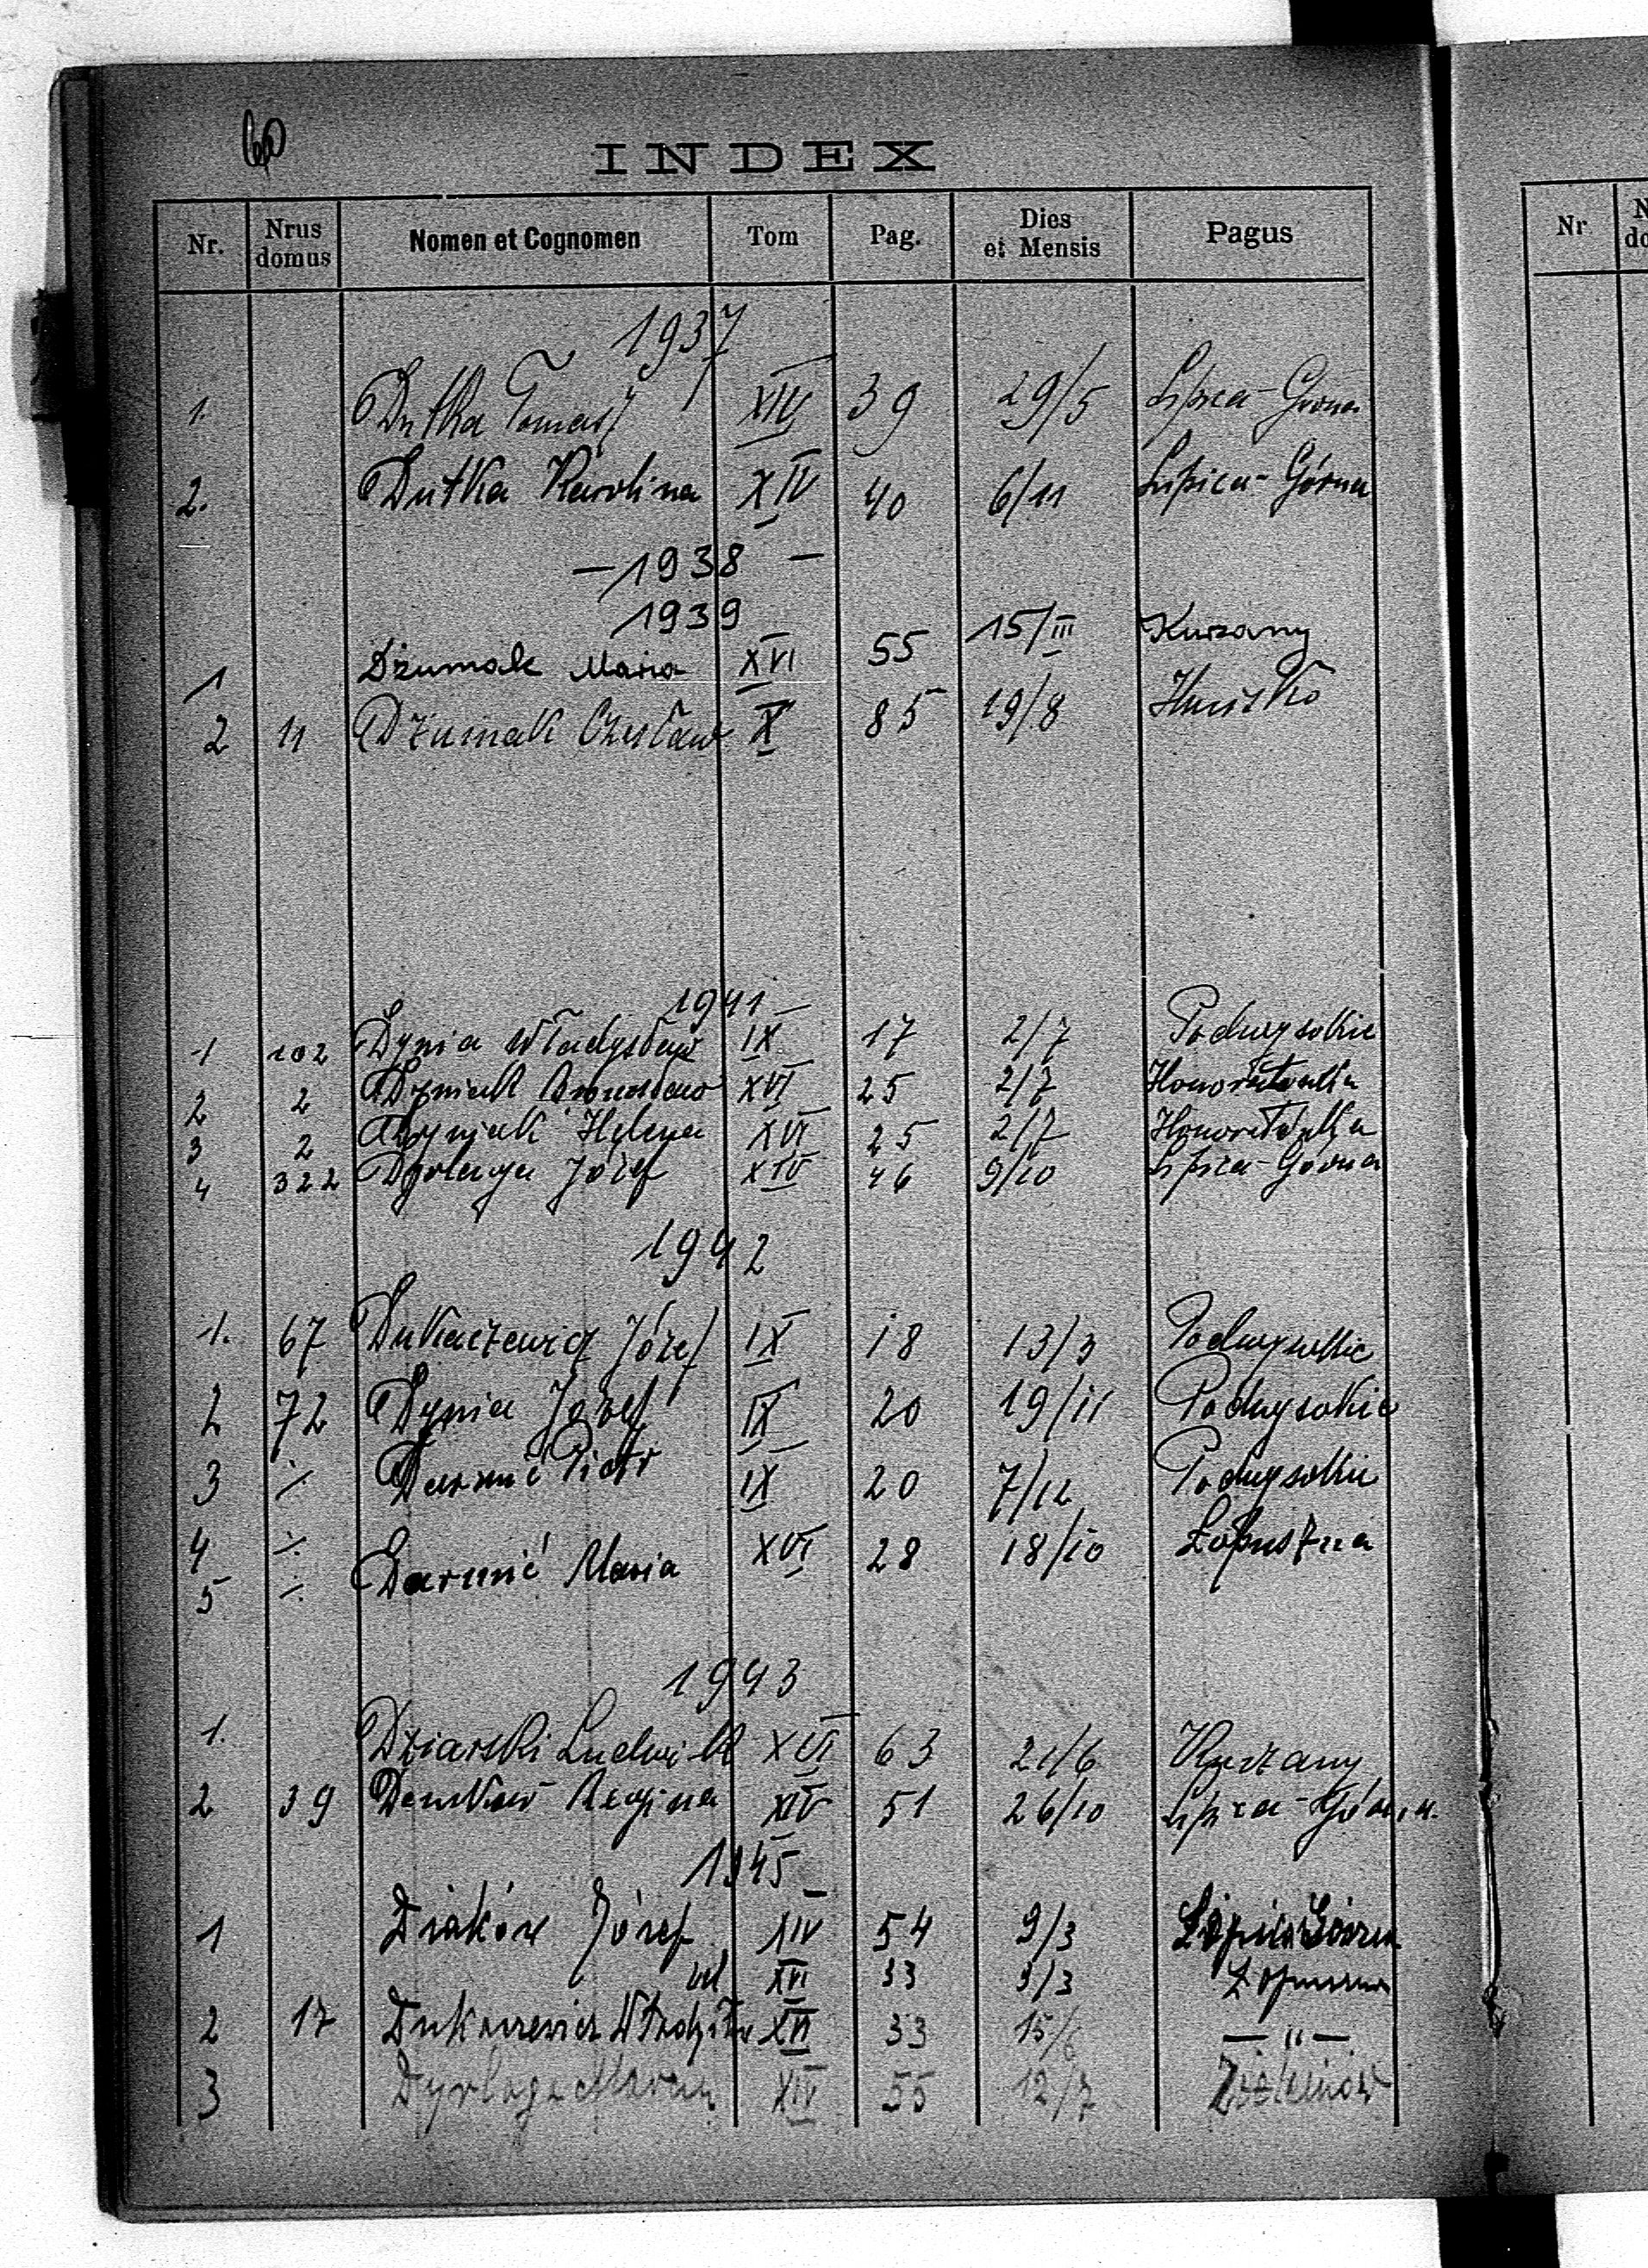 60
INDEX
Nr. Nrus domus Nomen et Cognomen Tom Pag. Dies et Mensis Pagus
1937
1. Dutka Tomasz XIV 39 29/5 Lipica-Górna
2. Dutka Karolina XIV 40 6/11 Lipica-Górna
— 1938 —
1939
1 Dżumak Maria XVI 55 15/III Kurzany
2 11 Dżumak Czesław X 85 19/8
1941 —
1 102 Dynia Władysław IX 17 2/7 Podwysokie
2 2 Dyniak Bronisław XVI 25 2/7 Honoratówka
3 2 Dyniak Helena XVI 25 2/7 Honoratówka
4 322 Dyrlaga Józef XIV 46 9/10 Lipica-Górna
1942
1. 67 Dukaczewicz Józef IX 18 13/3 Podwysokie
2 72 Dynia Józef IX 20 19/11 Podwysokie
3 ⁒ Darmić Piotr IX 20 7/12 Podwysokie
4 ⁒ Darmić Maria XVI 28 18/10 Łopuszna
5 ⁒
1943
1. Dziarski Ludwik XVI 63 21/6 Kurzany
2 39 Regina XIV 51 26/10 Lipica-Górna
1945
1 Diaków Józef XIV 54 9/3 Lipica Górna
vel XVI 33 3/3 Łopuszna
2 17 XVI 33 15/6 — " —
3 Dyrlaga XIV 55 12/7